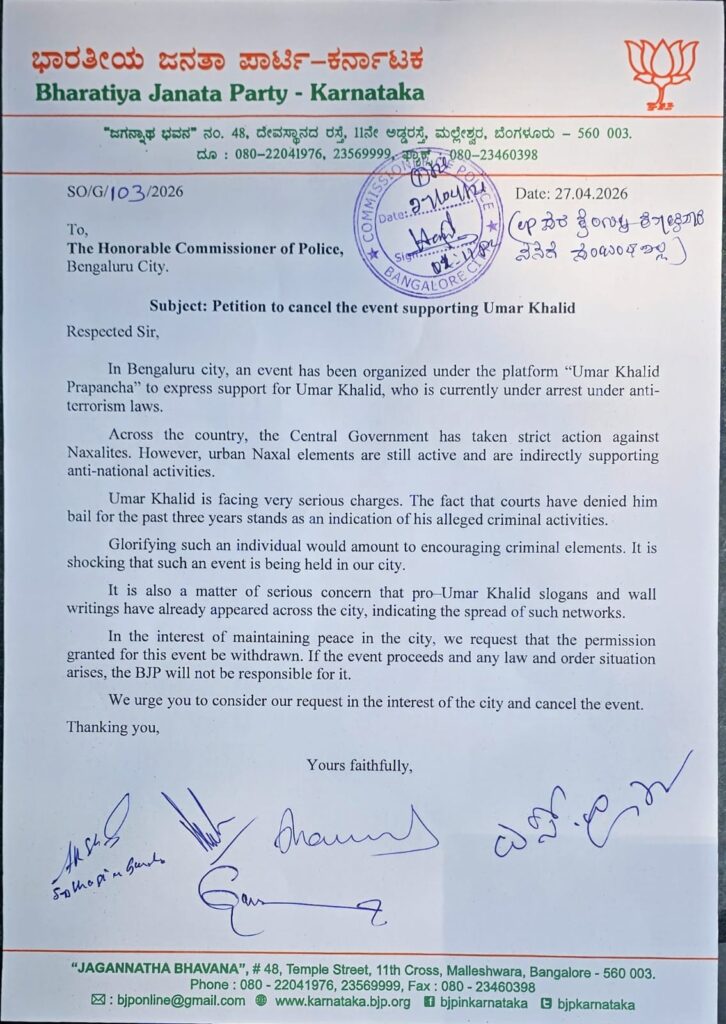 ಭಾರತೀಯ ಜನತಾ ಪಾರ್ಟಿ–ಕರ್ನಾಟಕ
Bharatiya Janata Party - Karnataka
"ಜಗನ್ನಾಥ ಭವನ" ನಂ. 48, ದೇವಸ್ಥಾನದ ರಸ್ತೆ, 11ನೇ ಅಡ್ಡರಸ್ತೆ, ಮಲ್ಲೇಶ್ವರ, ಬೆಂಗಳೂರು – 560 003.
ದೂ : 080–22041976, 23569999, ಫ್ಯಾಕ್ಸ್ : 080–23460398
SO/G/103/2026
Date: 27.04.2026
COMMISSIONER OF THE POLICE
Date:
Sign
BANGALORE CITY
To,
The Honorable Commissioner of Police,
Bengaluru City.
Subject: Petition to cancel the event supporting Umar Khalid
Respected Sir,
In Bengaluru city, an event has been organized under the platform “Umar Khalid
Prapancha” to express support for Umar Khalid, who is currently under arrest under anti-
terrorism laws.
Across the country, the Central Government has taken strict action against
Naxalites. However, urban Naxal elements are still active and are indirectly supporting
anti-national activities.
Umar Khalid is facing very serious charges. The fact that courts have denied him
bail for the past three years stands as an indication of his alleged criminal activities.
Glorifying such an individual would amount to encouraging criminal elements. It is
shocking that such an event is being held in our city.
It is also a matter of serious concern that pro–Umar Khalid slogans and wall
writings have already appeared across the city, indicating the spread of such networks.
In the interest of maintaining peace in the city, we request that the permission
granted for this event be withdrawn. If the event proceeds and any law and order situation
arises, the BJP will not be responsible for it.
We urge you to consider our request in the interest of the city and cancel the event.
Thanking you,
Yours faithfully,
“JAGANNATHA BHAVANA”, # 48, Temple Street, 11th Cross, Malleshwara, Bangalore - 560 003.
Phone : 080 - 22041976, 23569999, Fax : 080 - 23460398
: bjponline@gmail.com www.karnataka.bjp.org bjpinkarnataka bjpkarnataka